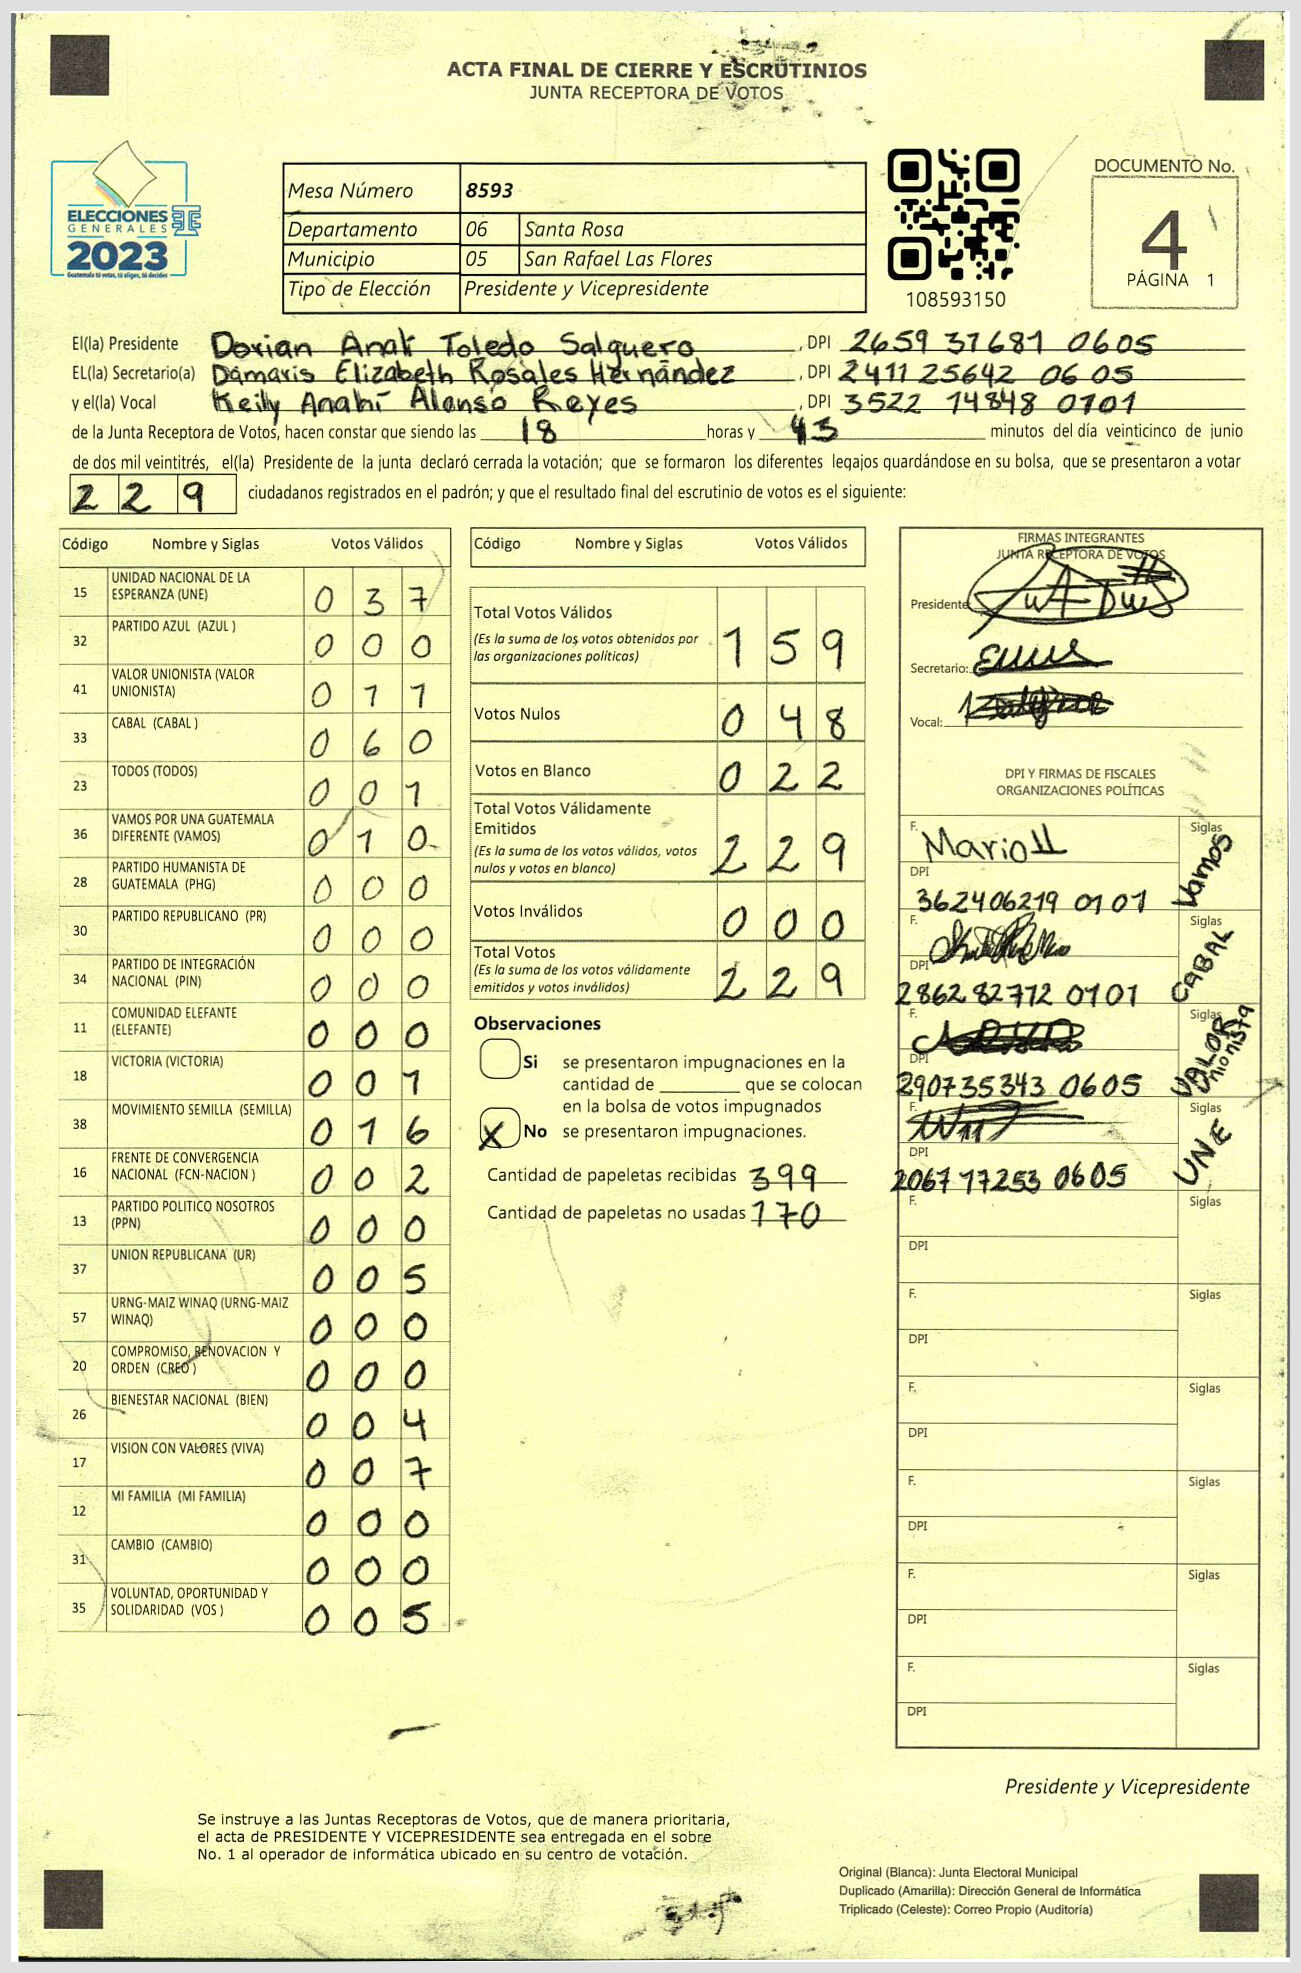 ACTA FINAL DE CIERRE Y ESCRUTINIOS
JUNTA RECEPTORA DE VOTOS
ELECCIONES
GENERALES
2023
Guatemala tú votas, tú eliges, tú decides
Mesa Número 8593
Departamento 06 Santa Rosa
Municipio 05 San Rafael Las Flores
Tipo de Elección Presidente y Vicepresidente
108593150
DOCUMENTO No.
4
PÁGINA 1
El(la) Presidente Dorian Anali Toledo Salguero, DPI 2659 37681 0605
EL(la) Secretario(a) Damaris Elizabeth Rosales Hernández, DPI 2411 25642 0605
y el(la) Vocal Keily Anahí Alonso Reyes, DPI 3522 14848 0101
de la Junta Receptora de Votos, hacen constar que siendo las 18 horas y 43 minutos del día veinticinco de junio
de dos mil veintitrés, el(la) Presidente de la junta declaró cerrada la votación; que se formaron los diferentes legajos guardándose en su bolsa, que se presentaron a votar
229 ciudadanos registrados en el padrón; y que el resultado final del escrutinio de votos es el siguiente:
Código Nombre y Siglas Votos Válidos
15 UNIDAD NACIONAL DE LA ESPERANZA (UNE) 0 3 7
32 PARTIDO AZUL (AZUL ) 0 0 0
41 VALOR UNIONISTA (VALOR UNIONISTA) 0 1 1
33 CABAL (CABAL ) 0 6 0
23 TODOS (TODOS) 0 0 1
36 VAMOS POR UNA GUATEMALA DIFERENTE (VAMOS) 0 1 0
28 PARTIDO HUMANISTA DE GUATEMALA (PHG) 0 0 0
30 PARTIDO REPUBLICANO (PR) 0 0 0
34 PARTIDO DE INTEGRACIÓN NACIONAL (PIN) 0 0 0
11 COMUNIDAD ELEFANTE (ELEFANTE) 0 0 0
18 VICTORIA (VICTORIA) 0 0 1
38 MOVIMIENTO SEMILLA (SEMILLA) 0 1 6
16 FRENTE DE CONVERGENCIA NACIONAL (FCN-NACION ) 0 0 2
13 PARTIDO POLITICO NOSOTROS (PPN) 0 0 0
37 UNION REPUBLICANA (UR) 0 0 5
57 URNG-MAIZ WINAQ (URNG-MAIZ WINAQ) 0 0 0
20 COMPROMISO, RENOVACION Y ORDEN (CREO ) 0 0 0
26 BIENESTAR NACIONAL (BIEN) 0 0 4
17 VISION CON VALORES (VIVA) 0 0 7
12 MI FAMILIA (MI FAMILIA) 0 0 0
31 CAMBIO (CAMBIO) 0 0 0
35 VOLUNTAD, OPORTUNIDAD Y SOLIDARIDAD (VOS ) 0 0 5
Código Nombre y Siglas Votos Válidos
Total Votos Válidos 1 5 9
(Es la suma de los votos obtenidos por
las organizaciones políticas)
Votos Nulos 0 4 8
Votos en Blanco 0 2 2
Total Votos Válidamente
Emitidos 2 2 9
(Es la suma de los votos válidos, votos
nulos y votos en blanco)
Votos Inválidos 0 0 0
Total Votos 2 2 9
(Es la suma de los votos válidamente
emitidos y votos inválidos)
Observaciones
Si se presentaron impugnaciones en la
cantidad de ________ que se colocan
en la bolsa de votos impugnados
X No se presentaron impugnaciones.
Cantidad de papeletas recibidas 399
Cantidad de papeletas no usadas 170
FIRMAS INTEGRANTES
JUNTA RECEPTORA DE VOTOS
Presidente:
Secretario:
Vocal:
DPI Y FIRMAS DE FISCALES
ORGANIZACIONES POLÍTICAS
F. Mario Siglas Vamos
DPI
362406219 0101
F. Siglas CABAL
DPI
2862 82712 0101
F. Siglas VALOR Unionista
DPI
290735343 0605
F. Siglas UNE
DPI
2067 17253 0605
F. Siglas
DPI
F. Siglas
DPI
F. Siglas
DPI
F. Siglas
DPI
F. Siglas
DPI
F. Siglas
DPI
Presidente y Vicepresidente
Se instruye a las Juntas Receptoras de Votos, que de manera prioritaria,
el acta de PRESIDENTE Y VICEPRESIDENTE sea entregada en el sobre
No. 1 al operador de informática ubicado en su centro de votación.
Original (Blanca): Junta Electoral Municipal
Duplicado (Amarilla): Dirección General de Informática
Triplicado (Celeste): Correo Propio (Auditoría)